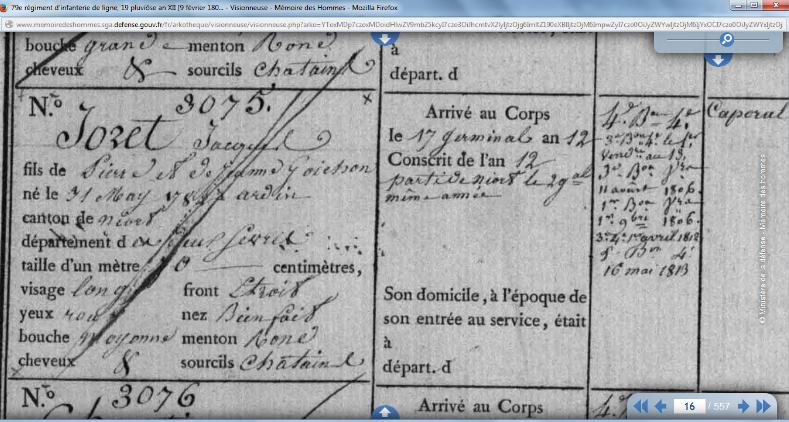 79e régiment d'infanterie de ligne, 19 pluviôse an XII [9 février 180... - Visionneuse - Mémoire des Hommes - Mozilla Firefox
www.memoiredeshommes.sga.defense.gouv.fr/fr/arkotheque/visionneuse/visionneuse.php?arko=
bouche grand menton Rond
cheveux & sourcils Chatains
à
départ. d
N.º 3075.
Jozet Jacques
fils de Pierre et de Jeanne Goichon
né le 31 May ardin
canton de niort
département d
taille d'un mètre centimètres,
visage long front Etroit
yeux nez Bien fait
bouche Moyenne menton Rond
cheveux & sourcils Chatains
Arrivé au Corps
le 17 germinal an 12
Conscrit de l'an 12
parti de niort le 2 g.al
même année
Son domicile, à l'époque de
son entrée au service, était
à
départ. d
4.e B.on 4.e
vend.re an 13.
11 août 1806.
1.er 9bre 1806.
1er avril 1812
5.e B.on 4.e
16 mai 1813
Caporal
N.º 3076
Arrivé au Corps
© Ministère de la défense - Mémoire des hommes
16 / 557